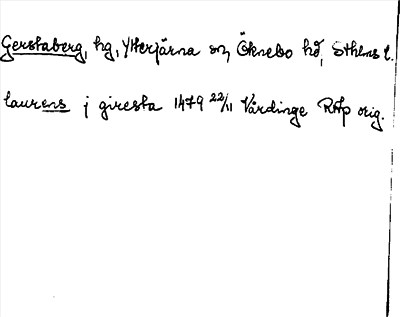 Gerstaberg, hg, Ytterjärna sn, Öknebo hd, Sthlms l.
laurens j giresta 1479 22/11 Vårdinge RAp orig.